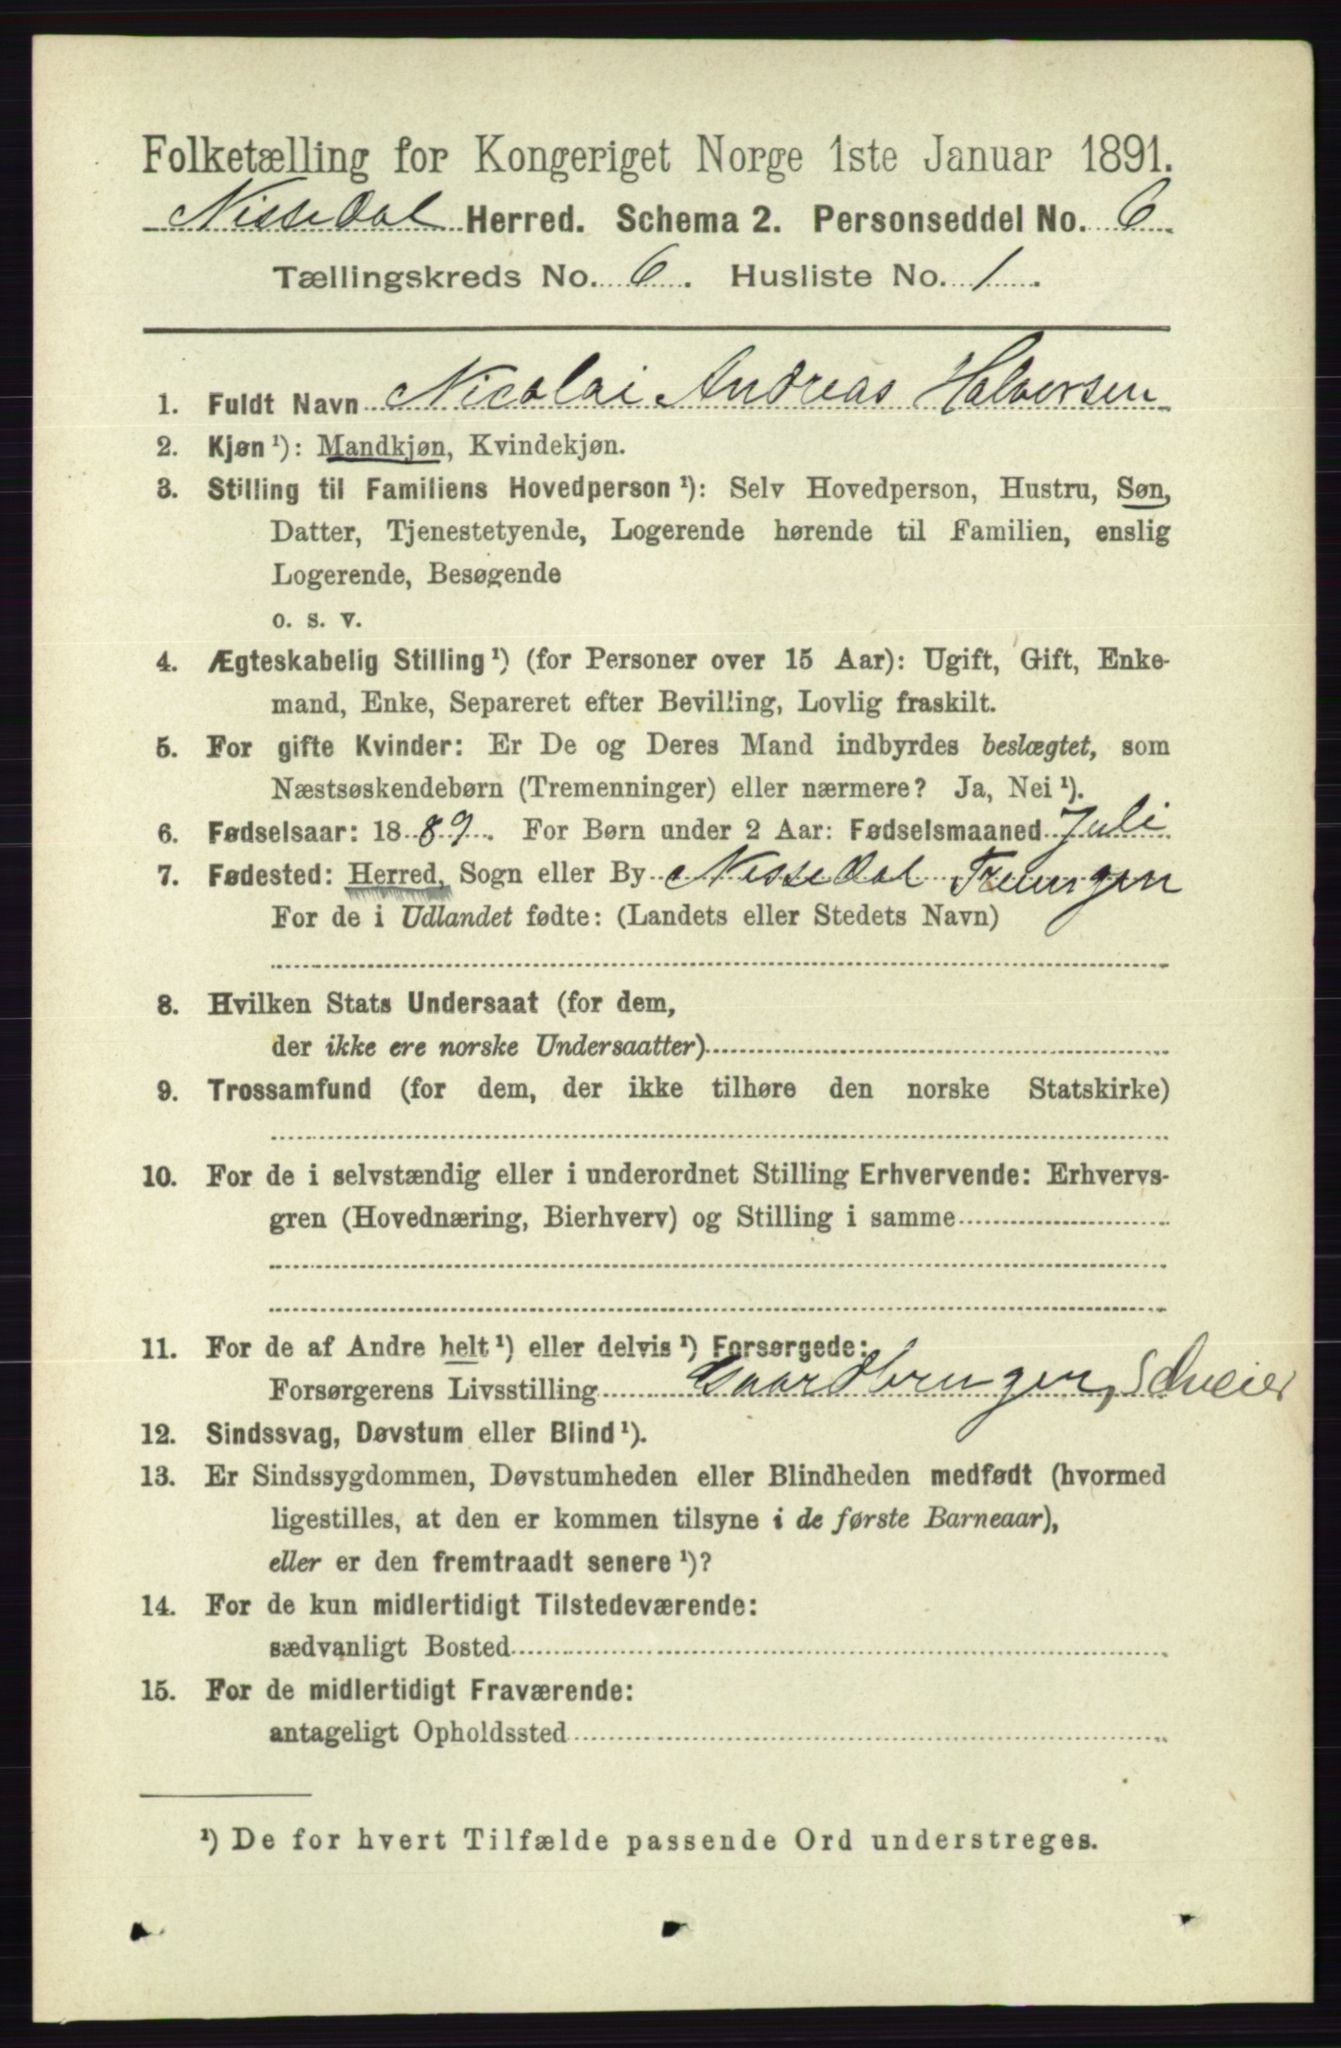 Folketælling for Kongeriget Norge 1ste Januar 1891.
Nissedal Herred. Schema 2. Personseddel No. 6
Tællingskreds No. 6. Husliste No. 1.
1. Fuldt Navn Nicolai Andreas Halvorsen
2. Kjøn¹): Mandkjøn, Kvindekjøn.
3. Stilling til Familiens Hovedperson¹): Selv Hovedperson, Hustru, Søn,
Datter, Tjenestetyende, Logerende hørende til Familien, enslig
Logerende, Besøgende
o. s. v.
4. Ægteskabelig Stilling¹) (for Personer over 15 Aar): Ugift, Gift, Enke-
mand, Enke, Separeret efter Bevilling, Lovlig fraskilt.
5. For gifte Kvinder: Er De og Deres Mand indbyrdes beslægtet, som
Næstsøskendebørn (Tremenninger) eller nærmere? Ja, Nei¹).
6. Fødselsaar: 1889. For Børn under 2 Aar: Fødselsmaaned Juli
7. Fødested: Herred, Sogn eller By Nissedal Treungen
For de i Udlandet fødte: (Landets eller Stedets Navn)
8. Hvilken Stats Undersaat (for dem,
der ikke ere norske Undersaatter)
9. Trossamfund (for dem, der ikke tilhøre den norske Statskirke)
10. For de i selvstændig eller i underordnet Stilling Erhvervende: Erhvervs-
gren (Hovednæring, Bierhverv) og Stilling i samme
11. For de af Andre helt¹) eller delvis¹) Forsørgede:
Forsørgerens Livsstilling Gaardbruger, Selveier
12. Sindssvag, Døvstum eller Blind¹).
13. Er Sindssygdommen, Døvstumheden eller Blindheden medfødt (hvormed
ligestilles, at den er kommen tilsyne i de første Barneaar),
eller er den fremtraadt senere¹)?
14. For de kun midlertidigt Tilstedeværende:
sædvanligt Bosted
15. For de midlertidigt Fraværende:
antageligt Opholdssted
¹) De for hvert Tilfælde passende Ord understreges.